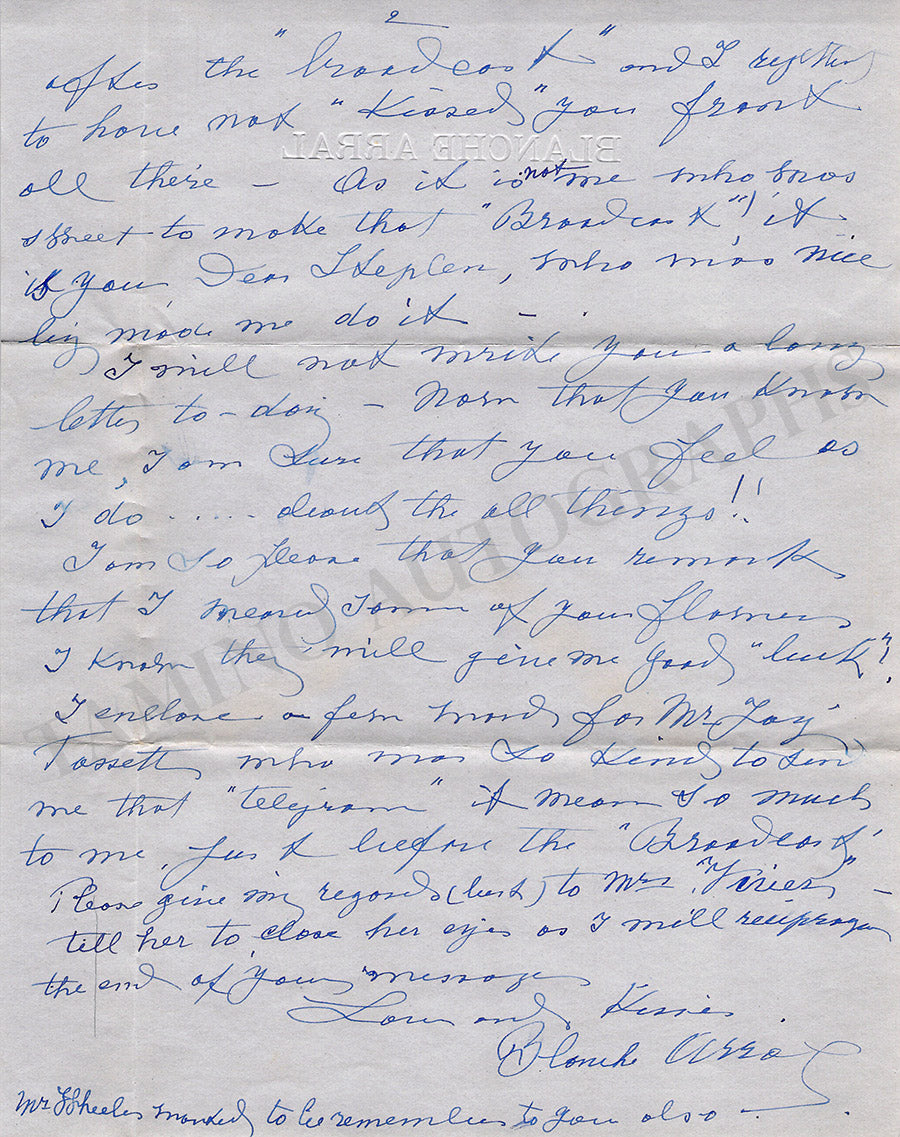 2
after the "broadcast" and I regetted
to have not "Kissed" you front
BLANCHE ARRAL
all there – As it is not me who was
sweet to make that "Broadcast", it
is you Dear Stephen, who was nice
big made me do it – .
I will not write you a long
letter to-day – Now that you Know
me, I am sure that you feel as
I do ..... about the all things!!
I am so please that you remark
that I weared some of your flowers
I Know they will give me good "luck"!
I enclose a few words for Mr Jay
Fassett, who was so Kind to send
me that "telegram" it mean so much
to me, just before the "Broadcast"
Please give my regards (best) to Mrs –
tell her to close her eyes as I will reciprogue
the end of your message
Love and Kisses
Blanche Arral
Mr Wheeler wanted to be remember to you also –
TAMINO AUTOGRAPHS